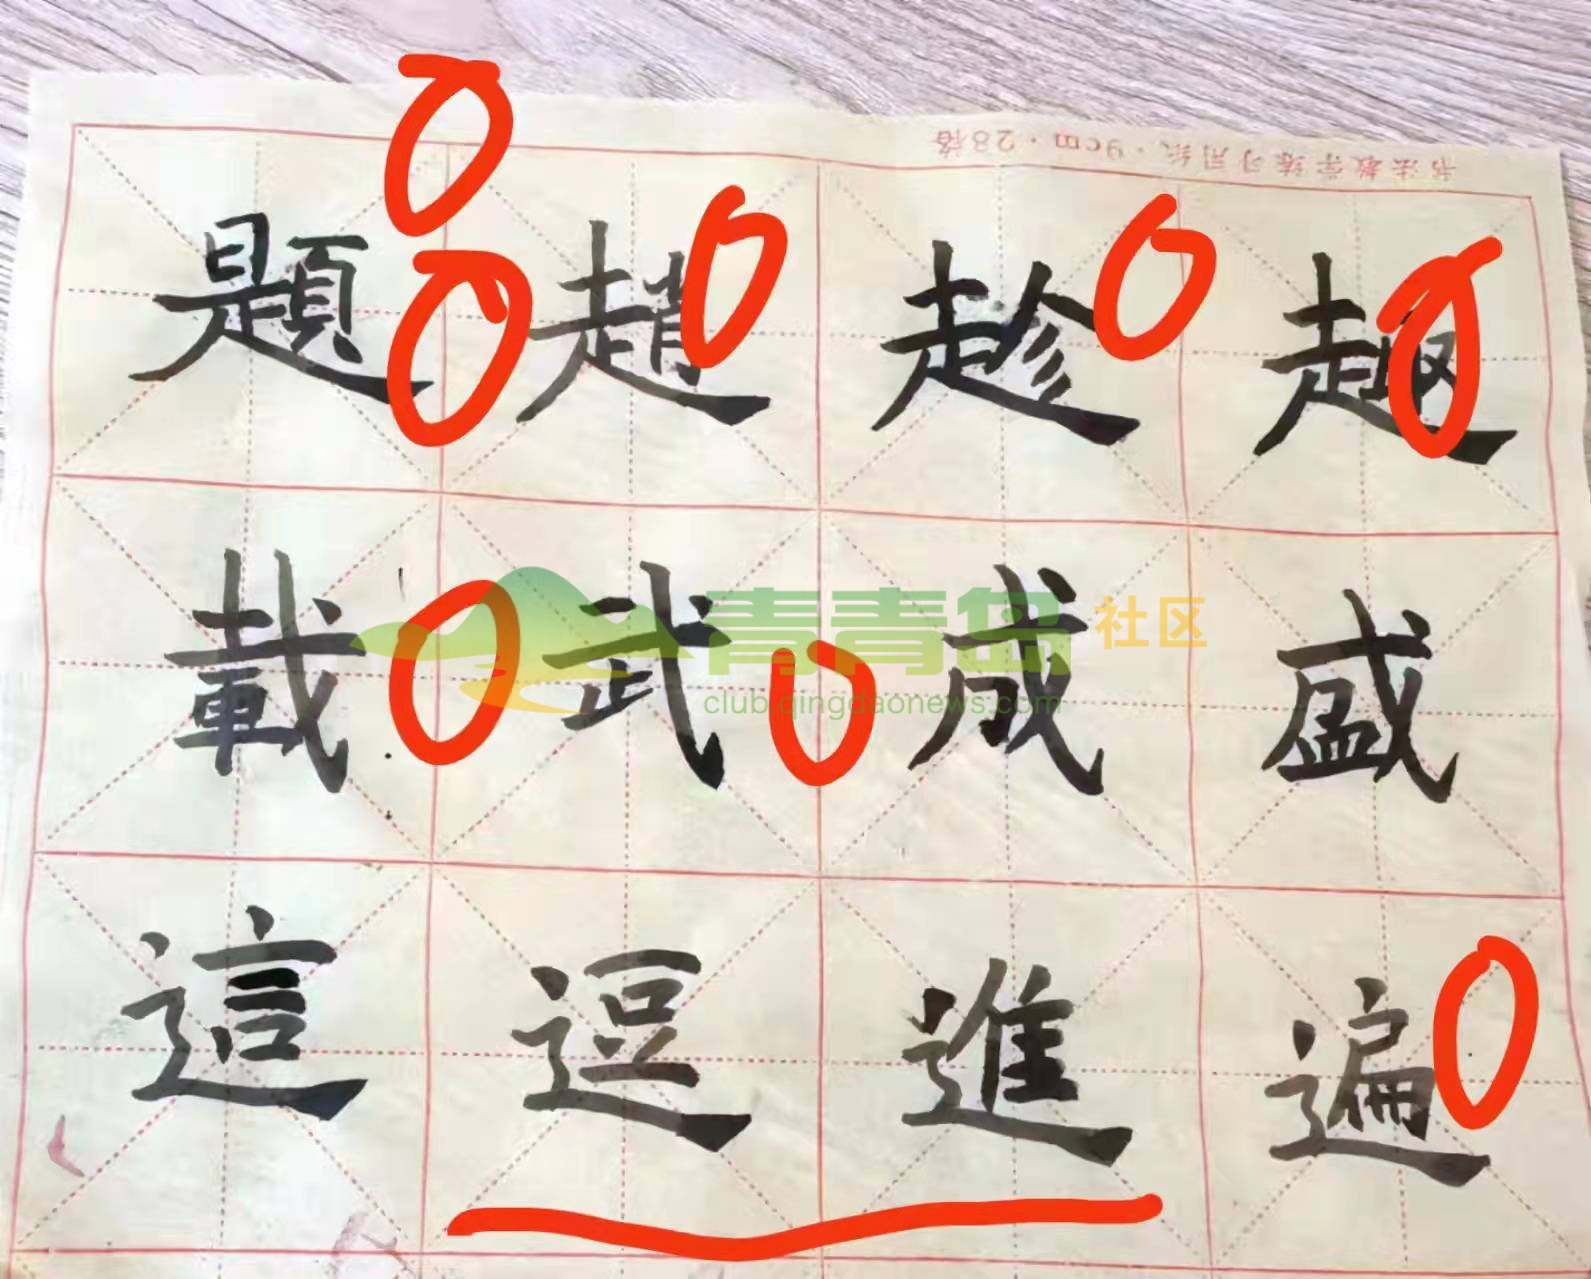 书法教学练习用纸·9cm·28格
題趙趁趣
載武成盛
這逗進遍
青青岛社区
club.qingdaonews.com